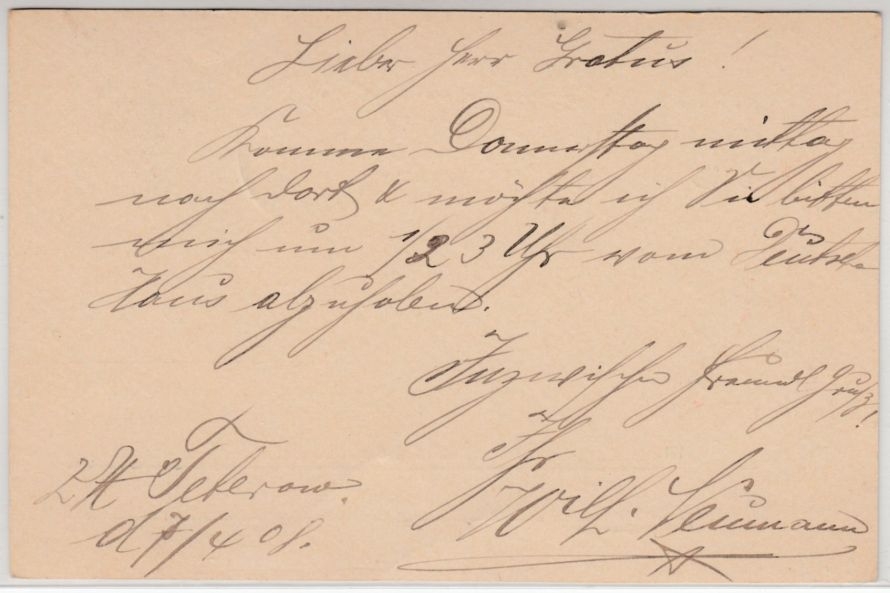 Lieber Herr Gratus!
Komme Donnerstag mittag
nach dort & möchte ich Sie bitten
mich um 1/2 3 Uhr vom Deutsch
Haus abzuholen.
Inzwischen freundl Gruß!
Ihr
Wilh. Neumann
Teterow
d 7/4 08.